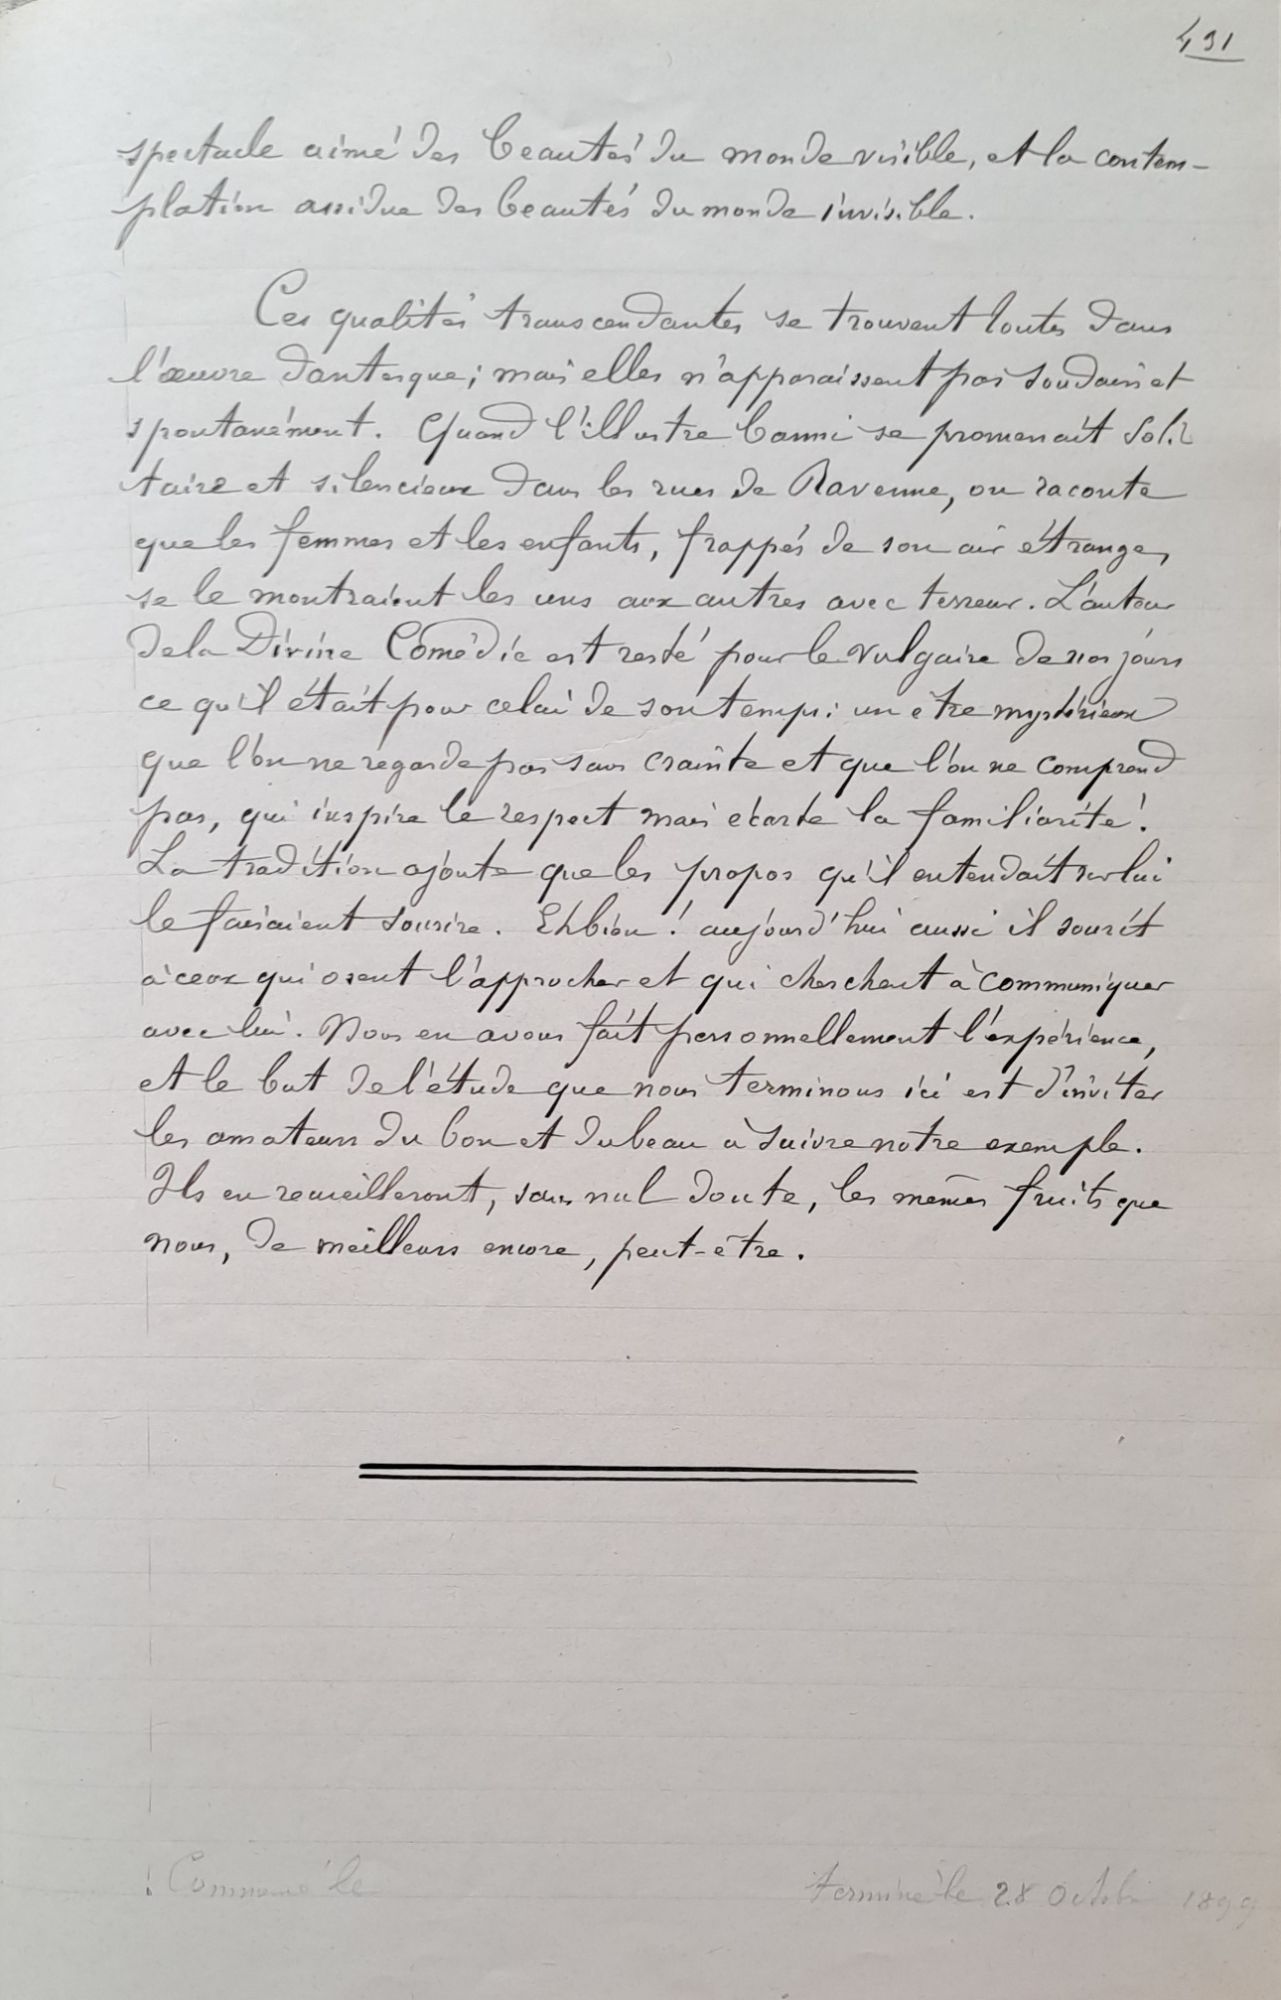 491
spectacle aimé des beautés du monde visible, et la contem-
plation assidue des beautés du monde invisible.
Ces qualités transcendantes se trouvent toutes dans
l'œuvre dantesque; mais elles n'apparaissent pas soudain et
spontanément. Quand l'illustre banni se promenait soli
taire et silencieux dans les rues de Ravenne, on raconte
que les femmes et les enfants, frappés de son air étrange,
se le montraient les uns aux autres avec terreur. L'auteur
de la Divine Comédie est resté pour le vulgaire de nos jours
ce qu'il était pour celui de son temps: un etre mystérieux
que l'on ne regarde pas sans crainte et que l'on ne comprend
pas, qui inspire le respect mais écarte la familiarité!
La tradition ajoute que les propos qu'il entendait sur lui
le faisaient sourire. Eh bien! aujourd'hui aussi il sourit
à ceux qui osent l'approcher et qui cherchent à communiquer
avec lui. Nous en avons fait personnellement l'expérience,
et le but de l'étude que nous terminons ici est d'inviter
les amateurs du bon et du beau à suivre notre exemple.
Ils en recueilleront, sans nul doute, les mêmes fruits que
nous, de meilleurs encore, peut-être.
Commencé le
terminé le 28 Octobre 1899